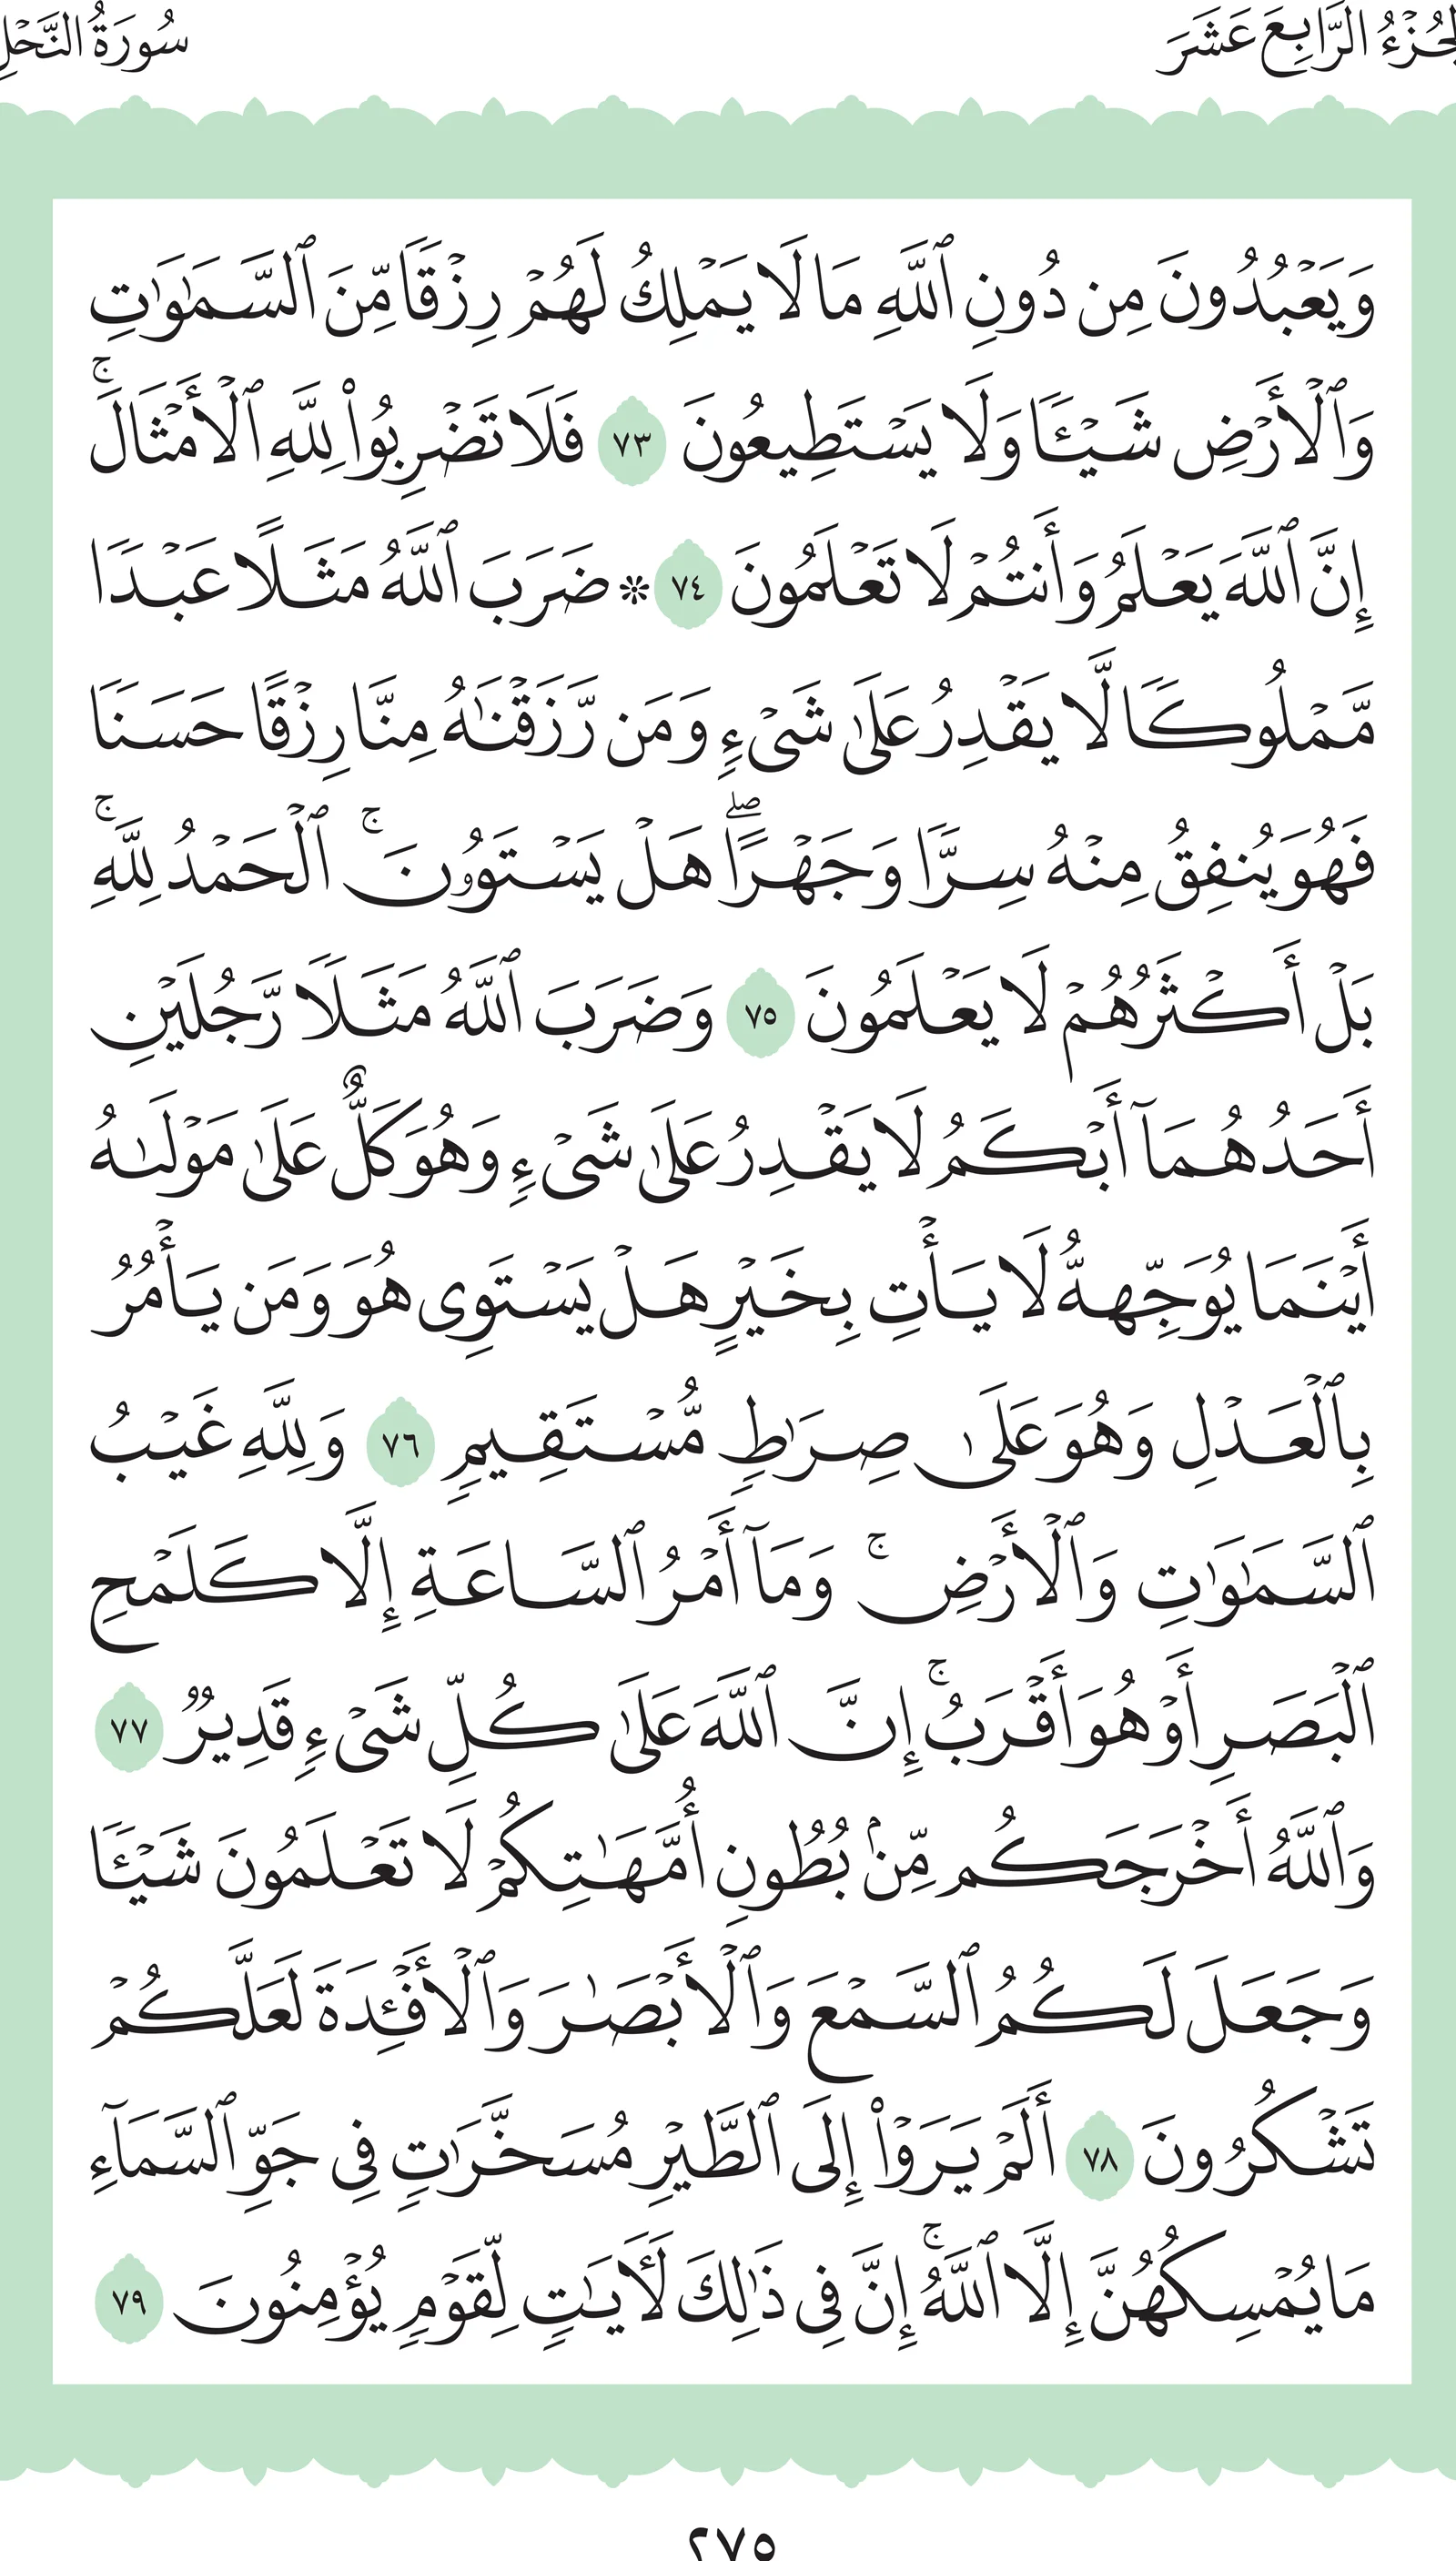 الجُزْءُ الرَّابِعَ عَشَرَ سُورَةُ النَّحْلِ
وَيَعْبُدُونَ مِن دُونِ ٱللَّهِ مَا لَا يَمْلِكُ لَهُمْ رِزْقًا مِّنَ ٱلسَّمَٰوَٰتِ
وَٱلْأَرْضِ شَيْـًٔا وَلَا يَسْتَطِيعُونَ ٧٣ فَلَا تَضْرِبُوا۟ لِلَّهِ ٱلْأَمْثَالَ ۚ
إِنَّ ٱللَّهَ يَعْلَمُ وَأَنتُمْ لَا تَعْلَمُونَ ٧٤ ❊ ضَرَبَ ٱللَّهُ مَثَلًا عَبْدًا
مَّمْلُوكًا لَّا يَقْدِرُ عَلَىٰ شَىْءٍ وَمَن رَّزَقْنَٰهُ مِنَّا رِزْقًا حَسَنًا
فَهُوَ يُنفِقُ مِنْهُ سِرًّا وَجَهْرًا ۖ هَلْ يَسْتَوُۥنَ ۚ ٱلْحَمْدُ لِلَّهِ ۚ
بَلْ أَكْثَرُهُمْ لَا يَعْلَمُونَ ٧٥ وَضَرَبَ ٱللَّهُ مَثَلًا رَّجُلَيْنِ
أَحَدُهُمَآ أَبْكَمُ لَا يَقْدِرُ عَلَىٰ شَىْءٍ وَهُوَ كَلٌّ عَلَىٰ مَوْلَىٰهُ
أَيْنَمَا يُوَجِّههُّ لَا يَأْتِ بِخَيْرٍ هَلْ يَسْتَوِى هُوَ وَمَن يَأْمُرُ
بِٱلْعَدْلِ وَهُوَ عَلَىٰ صِرَٰطٍ مُّسْتَقِيمٍ ٧٦ وَلِلَّهِ غَيْبُ
ٱلسَّمَٰوَٰتِ وَٱلْأَرْضِ ۚ وَمَآ أَمْرُ ٱلسَّاعَةِ إِلَّا كَلَمْحِ
ٱلْبَصَرِ أَوْ هُوَ أَقْرَبُ ۚ إِنَّ ٱللَّهَ عَلَىٰ كُلِّ شَىْءٍ قَدِيرٌ ٧٧
وَٱللَّهُ أَخْرَجَكُم مِّنۢ بُطُونِ أُمَّهَٰتِكُمْ لَا تَعْلَمُونَ شَيْـًٔا
وَجَعَلَ لَكُمُ ٱلسَّمْعَ وَٱلْأَبْصَٰرَ وَٱلْأَفْـِٔدَةَ لَعَلَّكُمْ
تَشْكُرُونَ ٧٨ أَلَمْ يَرَوْا۟ إِلَى ٱلطَّيْرِ مُسَخَّرَٰتٍ فِى جَوِّ ٱلسَّمَآءِ
مَا يُمْسِكُهُنَّ إِلَّا ٱللَّهُ ۚ إِنَّ فِى ذَٰلِكَ لَءَايَٰتٍ لِّقَوْمٍ يُؤْمِنُونَ ٧٩
٢٧٥